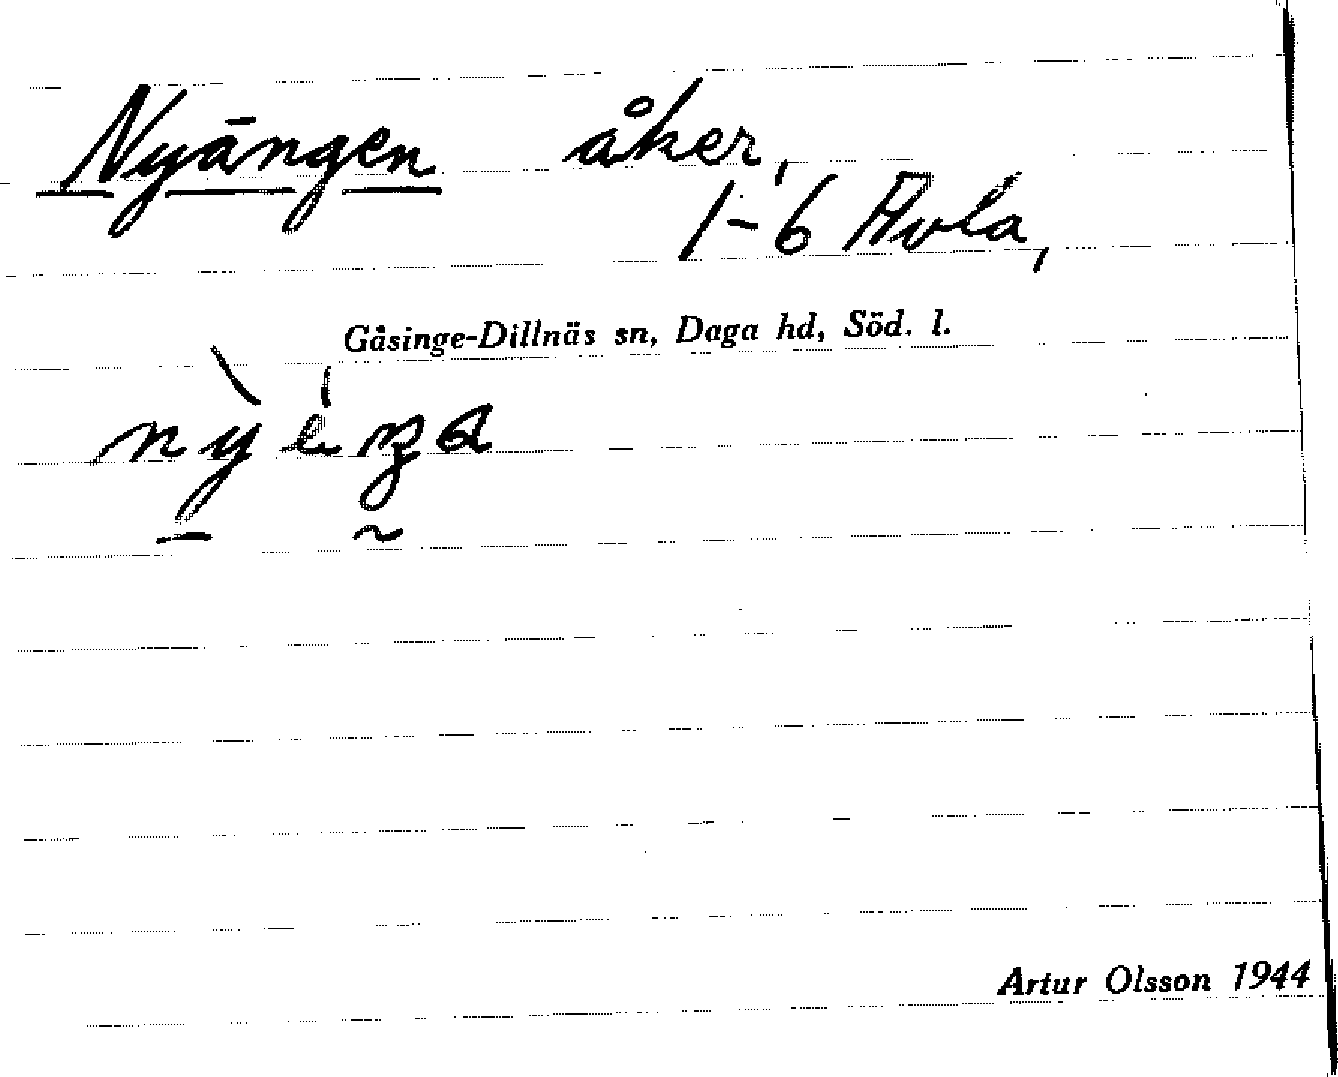 Nyängen åker,
1-6 Hvla,
Gåsinge-Dillnäs sn, Daga hd, Söd. l.
Artur Olsson 1944